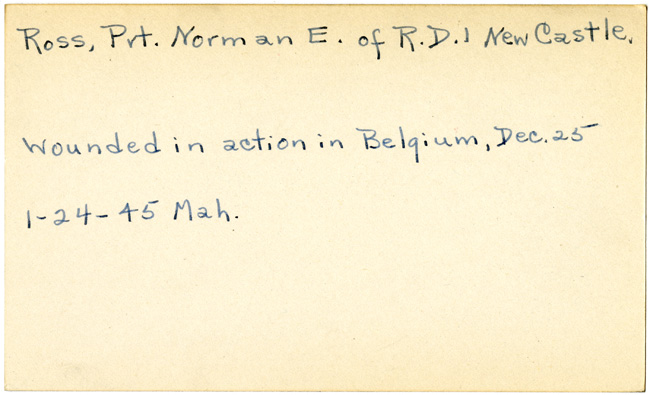 Ross, Prt. Norman E. of R.D.1 New Castle.
Wounded in action in Belgium, Dec. 25
1-24-45 Mah.